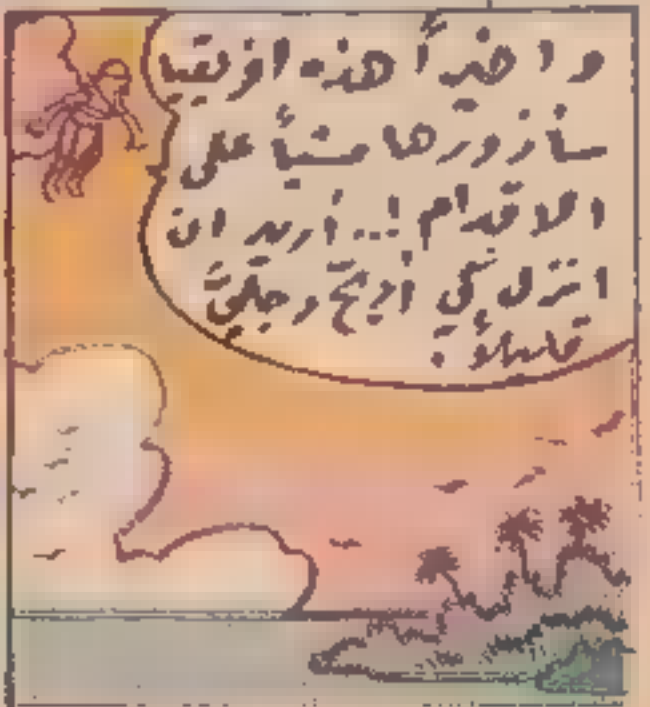 واخيراً هذه افريقيا
سأزورها مشياً على
الاقدام !.. أريد ان
انزل كي أريح رجليّ
قليلاً .